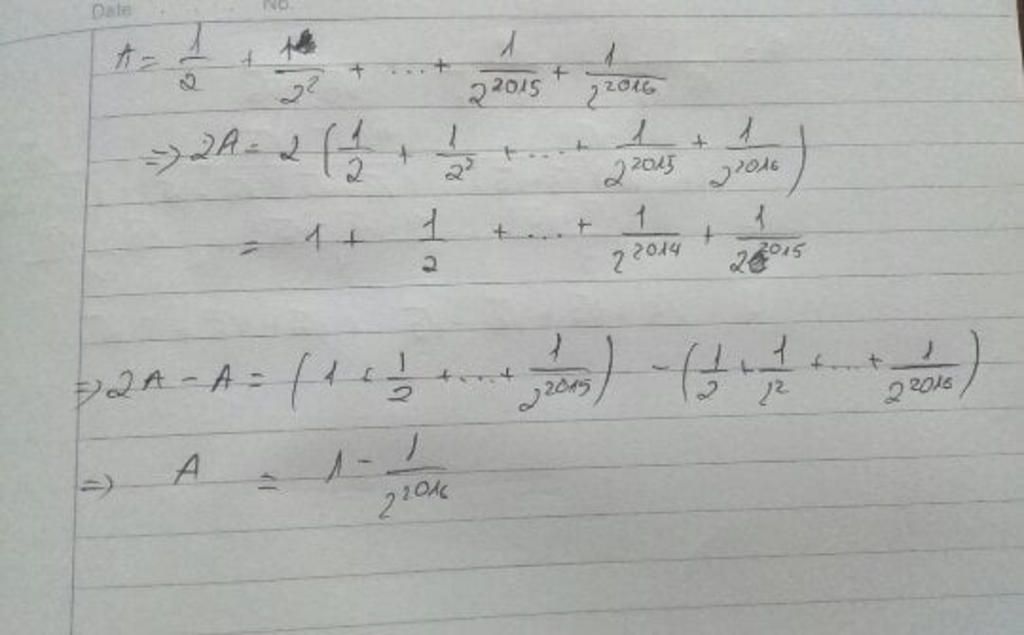 Date No.
A = 1/2 + 1/2² + ... + 1/2²⁰¹⁵ + 1/2²⁰¹⁶
=> 2A = 2 (1/2 + 1/2² + ... + 1/2²⁰¹⁵ + 1/2²⁰¹⁶)
= 1 + 1/2 + ... + 1/2²⁰¹⁴ + 1/2²⁰¹⁵
=> 2A - A = (1 + 1/2 + ... + 1/2²⁰¹⁵) - (1/2 + 1/2² + ... + 1/2²⁰¹⁶)
=> A = 1 - 1/2²⁰¹⁶